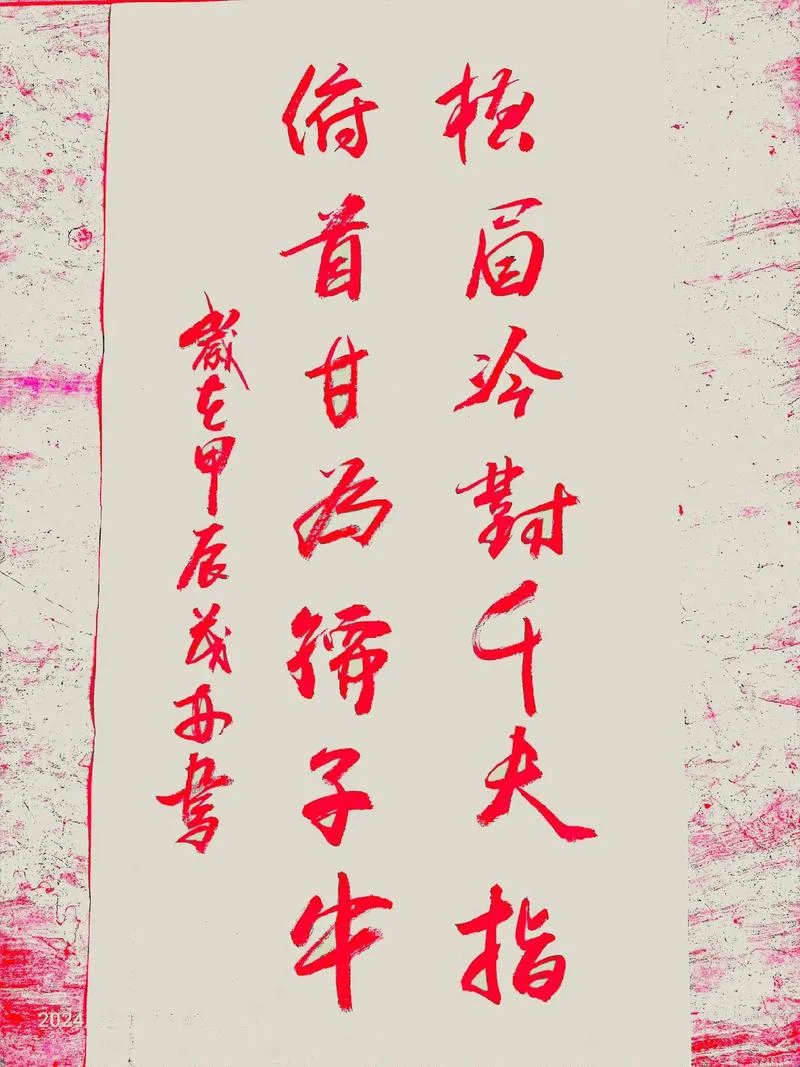 橫眉冷對千夫指
俯首甘为孺子牛
歲在甲辰茂册書
2024